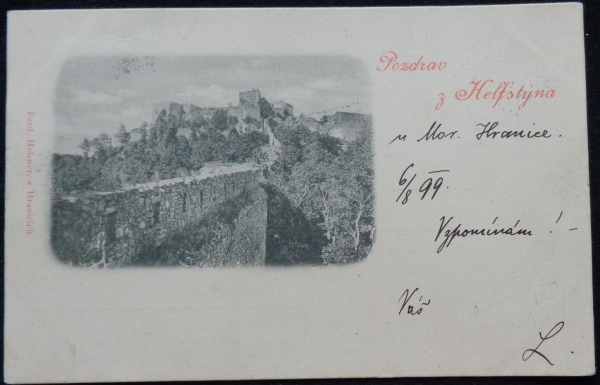 Pozdrav
z Helfštýna
u Mor. Hranice.
6/8 99.
Vzpomínám! -
Váš
L.
Ferd. , v Hranicích